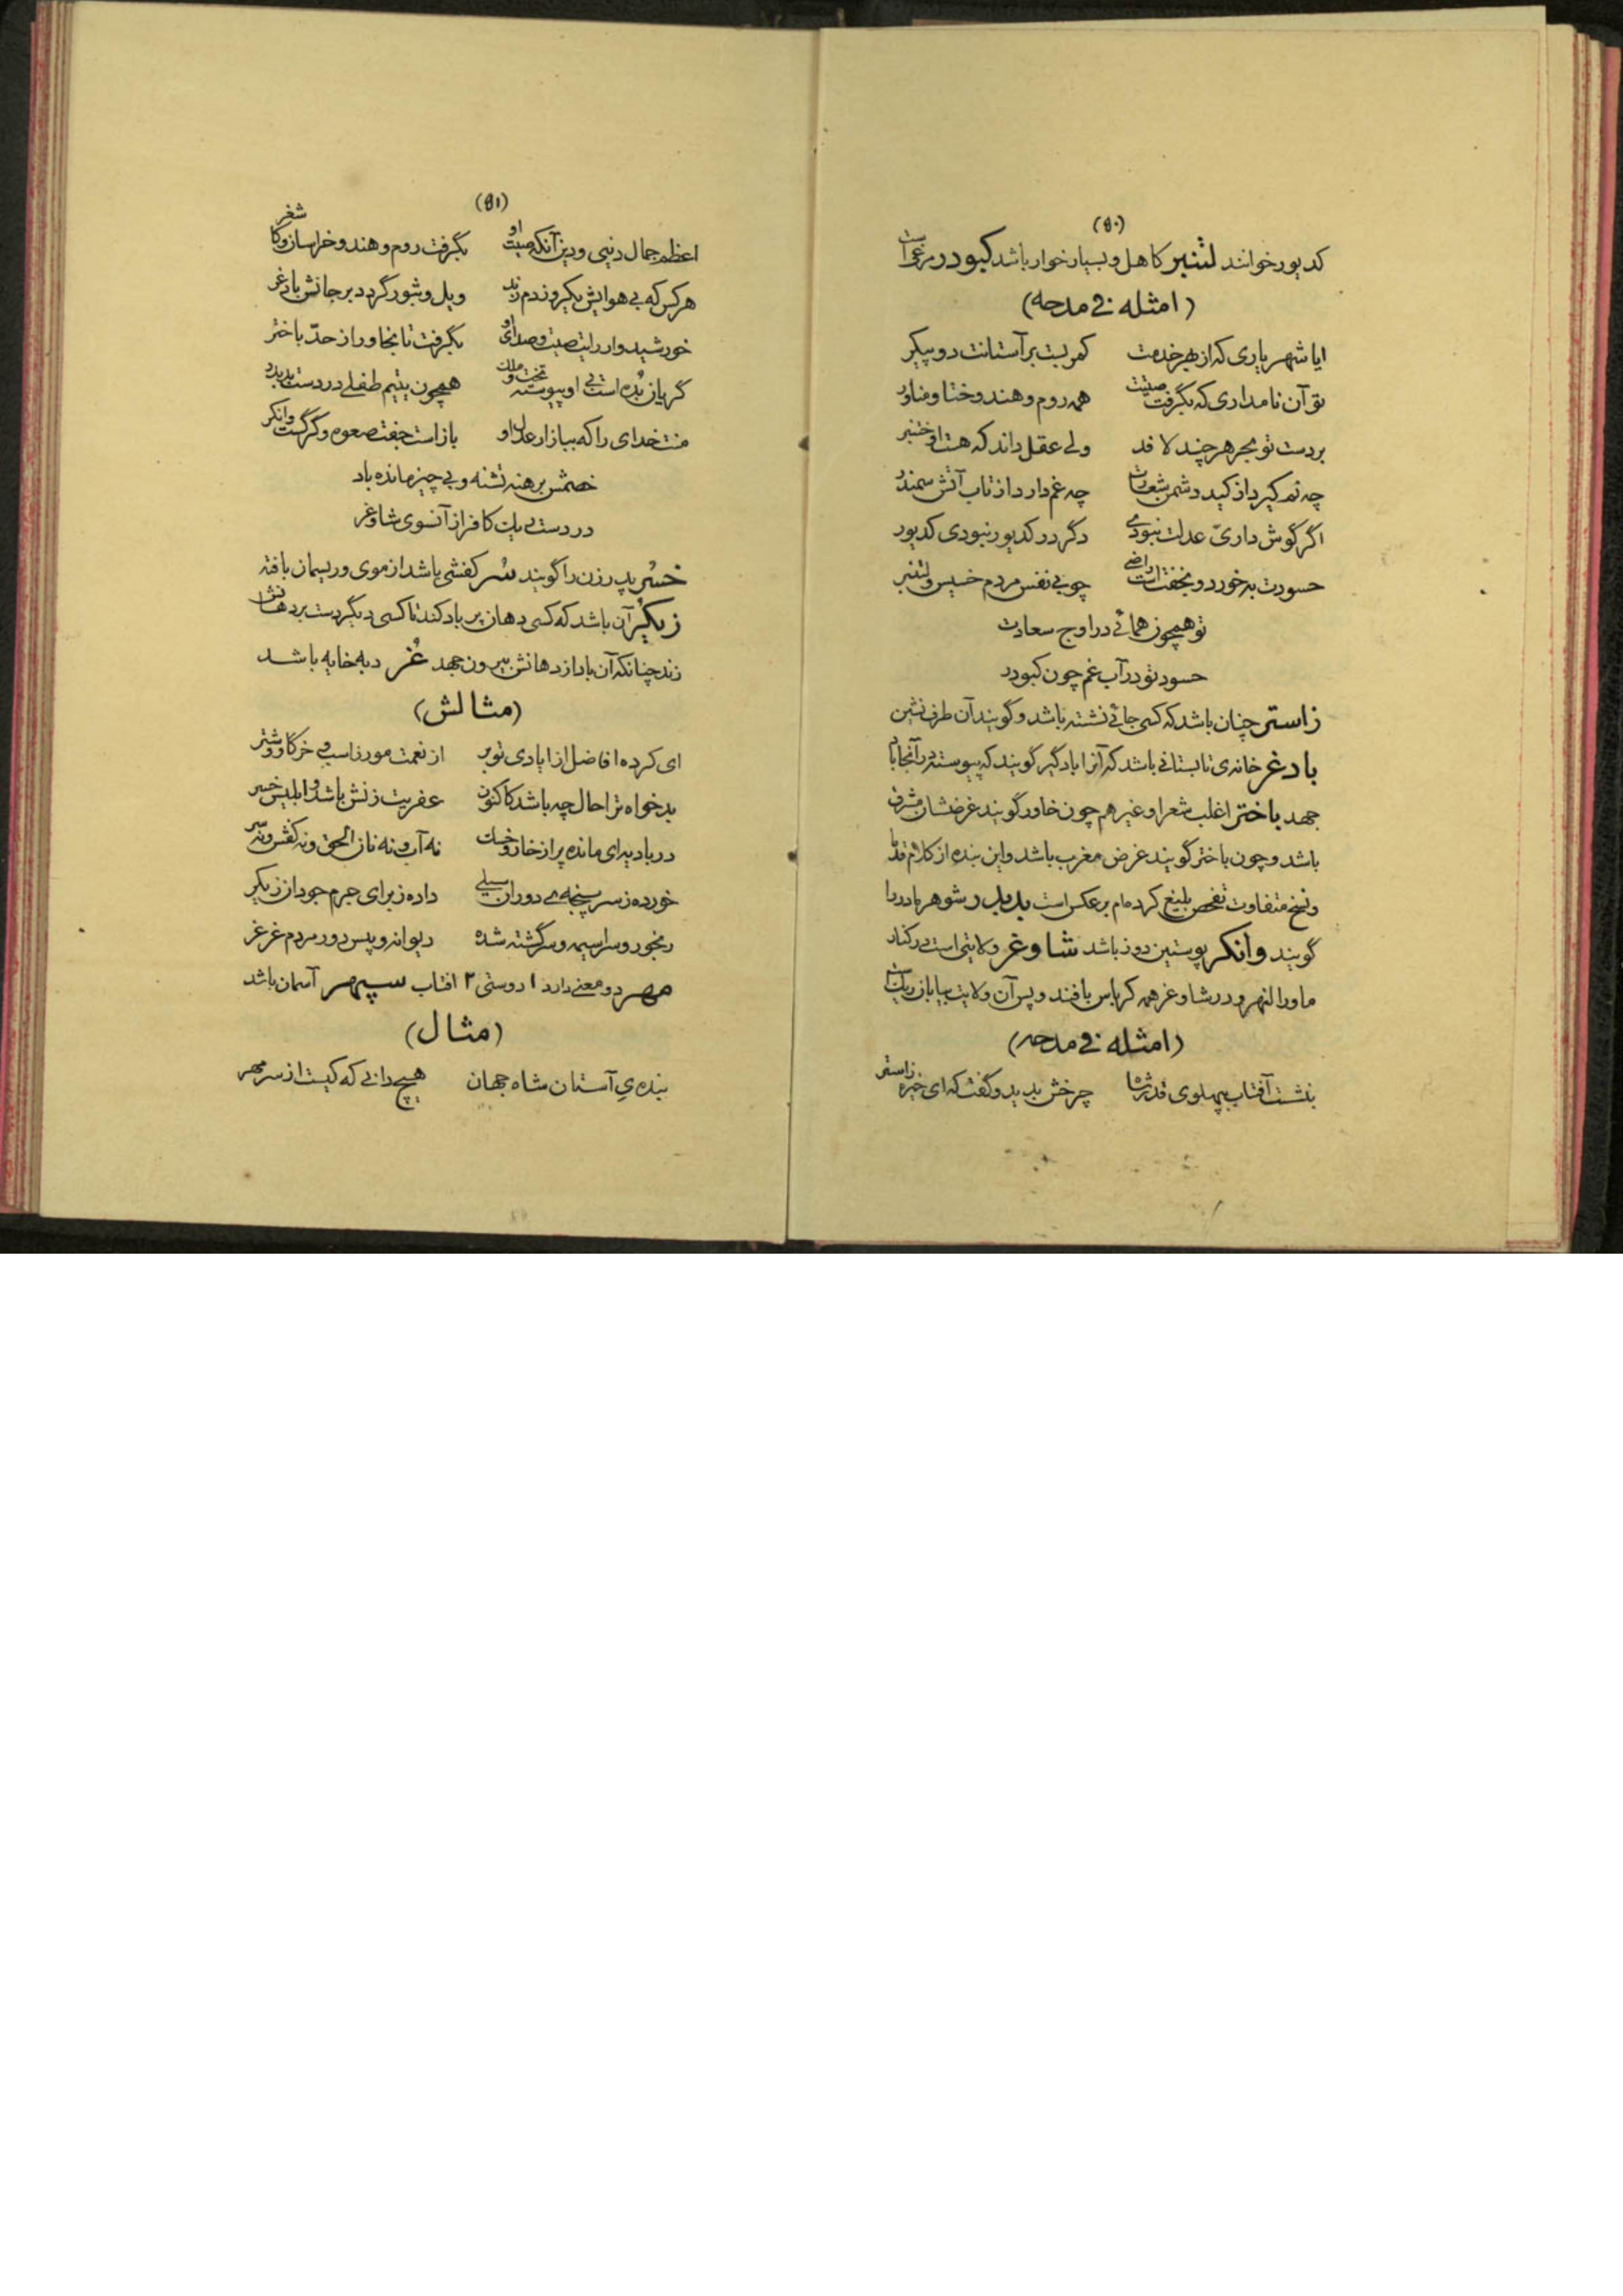 (۵۰)
کدیور خوانند لتنبر کاهل و بسیار خوار باشد کبودر مرغی است
(امثله فی مدحه)
ایا شهریاری که از بهر خدمت کمر بست بر آستانت دو پیکر
تو آن نامداری که بگرفت صیتت همه روم و هند و ختا و مناور
بر دست تو بحر هر چند لافد ولی عقل داند که هست او ختنبر
چه غم دارد از تاب آتش سمندر
اگر گوش داری عدلت نبودی دگر در کدیور نبودی کدیور
حسودت به خورد و بخفتن است راضی چو بی نفس مردم خسیس و لتنبر
تو همچون همائی در اوج سعادت
حسود تو در آب غم چون کبودر
زاستر چنان باشد که کسی جائی نشسته باشد و گویند آن طرف نشین
بادغر خانه‌ی تابستانی باشد که آنرا بادگیر گویند که پیوسته در آنجا باد
جهد باختر اغلب شعرا و غیرهم چون خاور گویند غرضشان مشرق
باشد و چون باختر گویند غرض مغرب باشد و این بنده از کلام قدما
و نسخ متفاوت تفحص بلیغ کرده‌ام بر عکس است پدندر شوهر مادر را
گویند وانکر پوستین دوز باشد شاوغر ولایتی است در کنار
ماوراالنهر و در شاوغر همه کرباس بافند و پس آن ولایت بیابان ریگ است
(امثله فی مدحه)
بنشست آفتاب بپهلوی قدر شاه چرخش بدید و گفت که ای خیره زاستر
(۵۱)
اعظم جمال دنیی و دین آنکه صیت او بگرفت روم و هند و خراسان و کاشغر
هر کس که بی هوایش یکروز دم زند ویل و ثبور گردد بر جانش بادغر
خورشید وار رایت صیت و صدای او بگرفت تا بخاور از حدّ باختر
گریان بُده است بی او پیوسته تخت و ملک همچون یتیم طفلی در دست پدندر
منت خدای را که ببازار عدل او باز است جفت صعوه و گرگ است وانکر
خصمش برهنه تشنه و بی چیز مانده باد
در دست بی‌یات کافر از آنسوی شاوغر
خسُر پدر زن را گویند سُر کفشی باشد از موی و ریسمان بافته
زبگر آن باشد که کسی دهان پر باد کند تا کسی دیگر دست بر دهانش
زند چنانکه آن باد از دهانش بیرون جهد غُر دبه خایه باشد
(مثالش)
ای کرده افاضل از ایادی تو پر از نعمت مور ز اسب و خر گاو و شتر
بدخواه ترا حال چه باشد کاکنون عفریت زنش باشد و ابلیس خسر
در بادیه‌ای مانده پر از خار و خسک نه آب و نه نان الحق و نه کفش و نه سر
خورده ز سر پنجه‌ی دوران سیلی داده ز برای جرم جود از زبگر
رنجور و سراسیمه و سرگشته شده دیوانه و پیس دور مردم غر غر
مهر دو معنی دارد ۱ دوستی ۲ افتاب سپهر آسمان باشد
(مثال)
بنده‌یِ آستان شاه جهان هیچ دانی که کیست از سر مهر